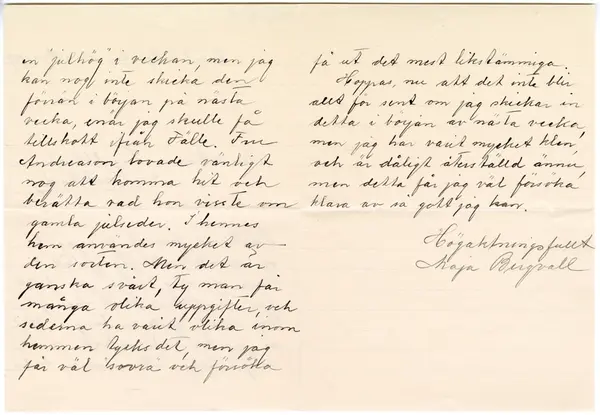 en "julhög" i veckan, men jag
kan nog inte skicka den
förrän i början på nästa
vecka, enär jag skulle få
tillskott ifrån Fälle. Fru
Andreason lovade vänligt
nog att komma hit och
berätta vad hon visste om
gamla julseder. I hennes
hem användes mycket av
den sorten. Men det är
ganska svårt, ty man får
många olika uppgifter, och
sederna ha varit olika inom
hemmen tycks det, men jag
får väl sovra och försöka
få ut det mest likstämmiga.
Hoppas, nu att det inte blir
allt för sent om jag skickar in
detta i början av nästa vecka,
men jag har varit mycket klen,
och är dåligt återställd ännu,
men detta får jag väl försöka
klara av så gott jag kan.
Högaktningsfullt
Maja Bergvall